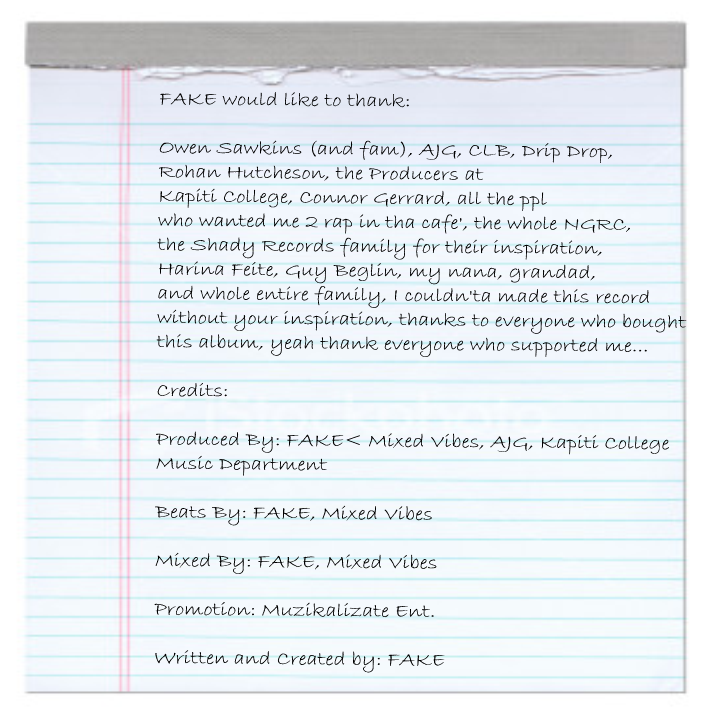 FAKE would like to thank:
Owen Sawkins (and fam), AJG, CLB, Drip Drop,
Rohan Hutcheson, the Producers at
Kapiti College, Connor Gerrard, all the ppl
who wanted me 2 rap in tha cafe', the whole NGRC,
the Shady Records family for their inspiration,
Harina Feite, Guy Beglin, my nana, grandad,
and whole entire family, I couldn'ta made this record
without your inspiration, thanks to everyone who bought
this album, yeah thank everyone who supported me...
Credits:
Produced By: FAKE< Mixed Vibes, AJG, Kapiti College
Music Department
Beats By: FAKE, Mixed Vibes
Mixed By: FAKE, Mixed Vibes
Promotion: Muzikalizate Ent.
Written and Created by: FAKE